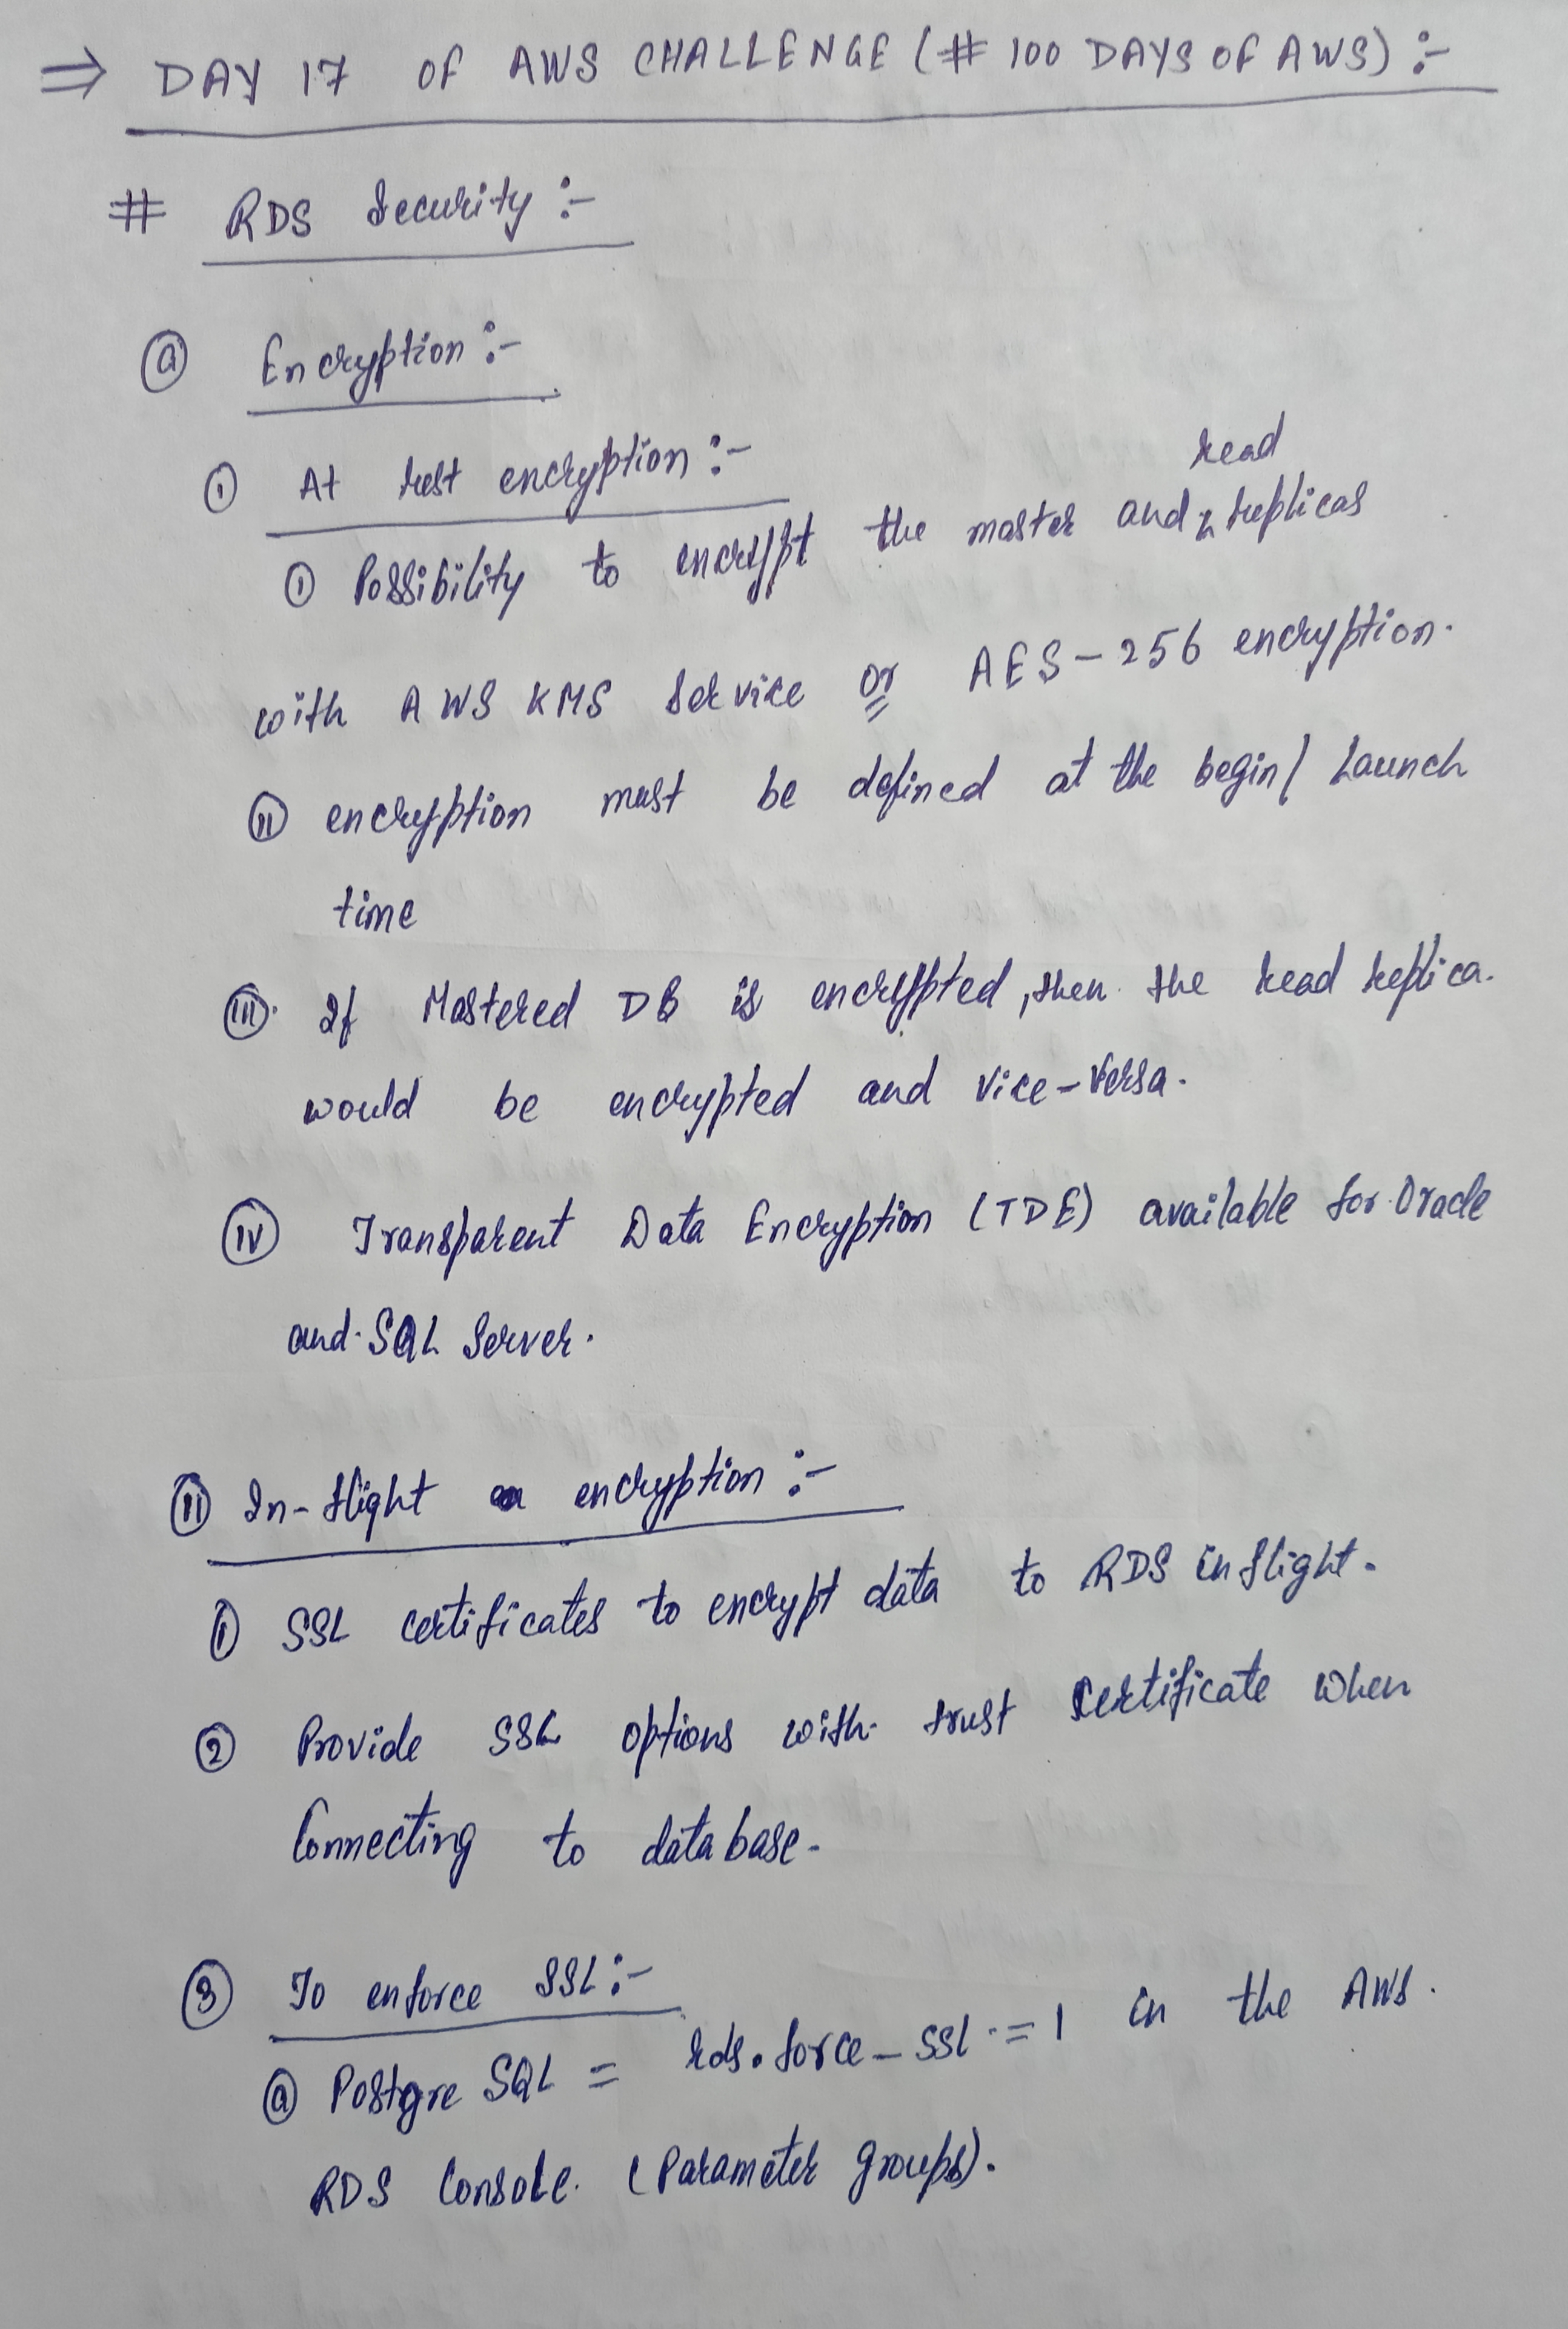 ⇒ DAY 17 OF AWS CHALLENGE (# 100 DAYS OF AWS) :-
# RDS Security :-
ⓐ Encryption :-
① At rest encryption :-
read
① Possibility to encrypt the master and replicas
with AWS KMS Service or AES-256 encryption.
ⓘⓘ encryption must be defined at the begin/ Launch
time
ⓘⓘⓘ. If Mastered DB is encrypted, then the read replica.
would be encrypted and vice-versa.
ⓘⓥ Transparent Data Encryption (TDE) available for Oracle
and SQL Server.
ⓘⓘ In-flight encryption :-
① SSL certificates to encrypt data to RDS in flight.
② Provide SSL options with trust certificate when
Connecting to data base.
③ To enforce SSL :-
ⓐ Postgre SQL = rds.force_ssl = 1 in the AWS.
RDS Console. (Parameter groups).